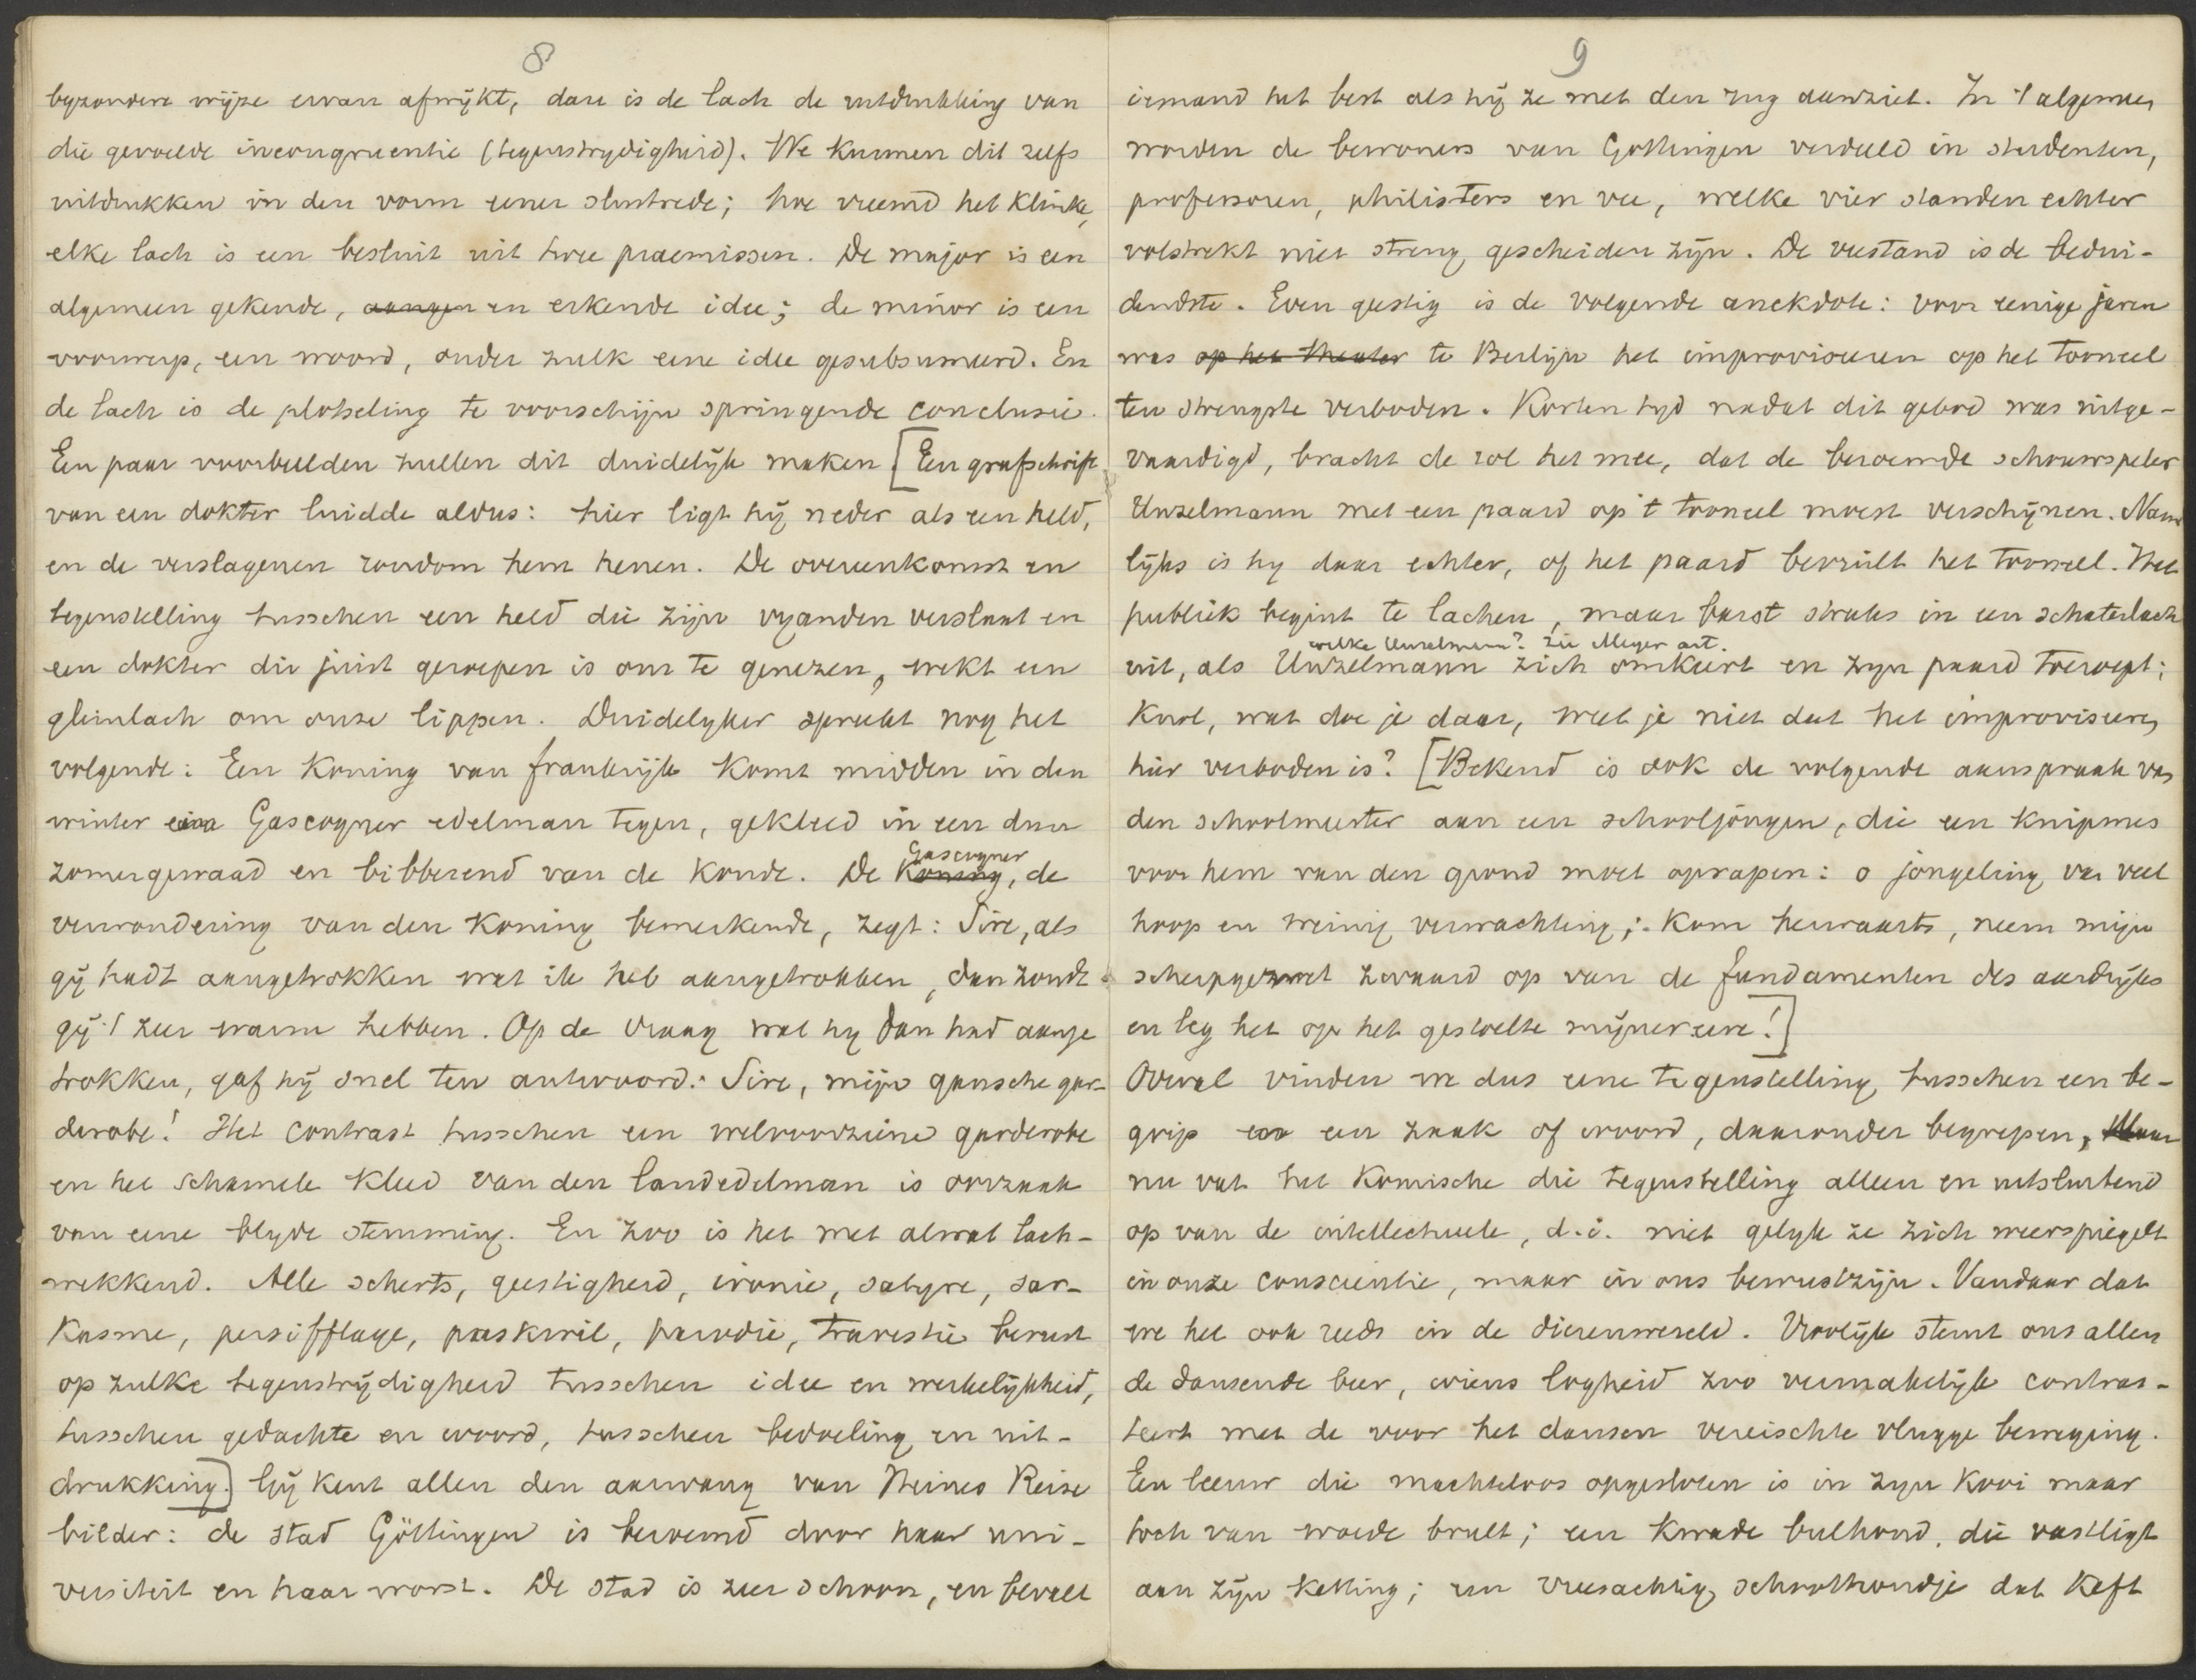 8
byzondere wijze ervan afwijkt, dan is de lach de uitdrukking van
die gevoelde incongruentie (tegenstrydigheid). We kunnen dit zelfs
uitdrukken in den vorm eener sluitrede; hoe vreemd het klinke,
elke lach is een besluit uit twee praemissen. De major is een
algemeen gekende, aangen en erkende idee; de minor is een
voorwerp, een woord, onder zulk eene idee gesubsumeerd. En
de lach is de plotseling te voorschijn springende conclusie.
Een paar voorbeelden zullen dit duidelijk maken [Een grafschrift
van een dokter luidde aldus: hier ligt hij neder als een held,
en de verslagenen rondom hem henen. De overeenkomst en
tegenstelling tusschen een held die zijn vyanden verslaat en
een dokter die juist geroepen is om te genezen, wekt een
glimlach om onze lippen. Duidelyker spreekt nog het
volgende: Een Koning van frankrijk komt midden in den
winter een Gascogner edelman tegen, gekleed in een dun
zomergewaad en bibberend van de koude. De Koning, de
Gascogner
verwondering van den Koning bemerkende, zegt: Sire, als
gij hadt aangetrokken wat ik heb aangetrokken, dan zoudt
gij 't zeer warm hebben. Op de vraag wat hy dan had aange
trokken, gaf hij snel ten antwoord: Sire, mijn gansche gar-
derobe! Het contrast tusschen een welvoorziene garderobe
en het schamele kleed van den landedelman is oorzaak
van eene blyde stemming. En zoo is het met alwat lach-
wekkend. Alle scherts, geestigheid, ironie, satyre, sar-
kasme, persifflage, paskwil, parodie, travestie berust
op zulke tegenstrijdigheid tusschen idee en werkelijkheid,
tusschen gedachte en woord, tusschen bedoeling en uit-
drukking.] Gij kent allen den aanvang van Heines Reise
bilder: de stad Göttingen is beroemd door haar uni-
versiteit en haar worst. De stad is zeer schoon, en bevalt
9
iemand het best als hij ze met den rug aanziet. In 't algemeen
worden de bewoners van Gottingen verdeeld in studenten,
professoren, philisters en vee, welke vier standen echter
volstrekt niet streng gescheiden zijn. De veestand is de bedui-
dendste. Even geestig is de volgende anekdote: voor eenige jaren
was op het theater te Berlijn het improviseeren op het tooneel
ten strengste verboden. Korten tyd nadat dit gebod was uitge-
vaardigd, bracht de rol het mee, dat de beroemde schouwspeler
Unzelmann met een paard op 't tooneel moest verschijnen. Nauw
lijks is hy daar echter, of het paard bevuilt het tooneel. Het
publiek begint te lachen, maar barst straks in een schaterlach
welke Unzelmann? zie Meyer art.
uit, als Unzelmann zich omkeert en zyn paard toeroept:
Karl, wat doe je daar, weet je niet dat het improviseeren
hier verboden is? [Bekend is ook de volgende aanspraak van
den schoolmeester aan een schooljongen, die een knipmes
voor hem van den grond moet oprapen: o jongeling van veel
hoop en weinig verwachting; kom herwaarts, neem mijn
scherpgewet zwaard op van de fundamenten des aardrijks
en leg het op het gestoelte mijner eere!]
Overal vinden we dus eene tegenstelling tusschen een be-
grip en een zaak of woord, daaronder begrepen, Maar
nu vat het komische die tegenstelling alleen en uitsluitend
op van de intellectueele, d.i. niet gelyk ze zich weerspiegelt
in onze conscientie, maar in ons bewustzijn. Vandaar dat
we het ook reeds in de dierenwereld. Vroolijk stemt ons allen
de dansende beer, wiens logheid zoo vermakelijk contras-
teert met de voor het dansen vereischte vlugge beweging.
Een leeuw die machteloos opgesloten is in zyn kooi maar
toch van woede brult; een kwade bulhond, die vastligt
aan zijn ketting; een vreesachtig schoothondje dat keft